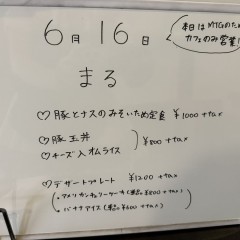 6月16日
本日はMTGのため
カフェのみ営業!
まる
♡豚とナスのみそいため定食 ¥1000+tax
♡豚玉丼
♡チーズ入オムライス
¥800+tax
♡デザートプレート ¥1200+tax
・アメリカンチェリーケーキ(単品¥800+tax)
・バナナアイス(単品¥600+tax)